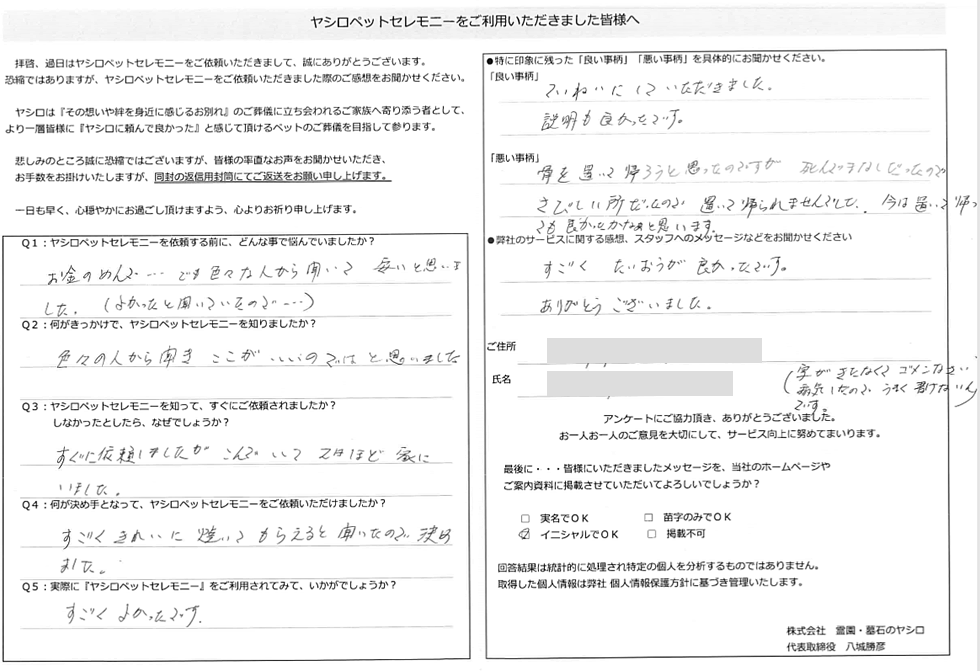 ヤシロペットセレモニーをご利用いただきました皆様へ
拝啓、過日はヤシロペットセレモニーをご依頼いただきまして、誠にありがとうございます。
恐縮ではありますが、ヤシロペットセレモニーをご依頼いただきました際のご感想をお聞かせください。
ヤシロは『その想いや絆を身近に感じるお別れ』のご葬儀に立ち会われるご家族へ寄り添う者として、
より一層皆様に『ヤシロに頼んで良かった』と感じて頂けるペットのご葬儀を目指して参ります。
悲しみのところ誠に恐縮ではございますが、皆様の率直なお声をお聞かせいただき、
お手数をお掛けいたしますが、同封の返信用封筒にてご返送をお願い申し上げます。
一日も早く、心穏やかにお過ごし頂けますよう、心よりお祈り申し上げます。
Q1：ヤシロペットセレモニーを依頼する前に、どんな事で悩んでいましたか？
お金のめんで… でも色々な人から聞いて 安いと思いま
した。（よかったと聞いていたので…）
Q2：何がきっかけで、ヤシロペットセレモニーを知りましたか？
色々の人から聞き ここが いいのではと思いました
Q3：ヤシロペットセレモニーを知って、すぐにご依頼されましたか？
しなかったとしたら、なぜでしょうか？
すぐに依頼しましたが こんでいて 2日ほど 家に
いました。
Q4：何が決め手となって、ヤシロペットセレモニーをご依頼いただけましたか？
すごくきれいに 焼いて もらえると 聞いたので 決め
ました。
Q5：実際に『ヤシロペットセレモニー』をご利用されてみて、いかがでしょうか？
すごく よかったです。
●特に印象に残った「良い事柄」「悪い事柄」を具体的にお聞かせください。
「良い事柄」
ていねいにしていただきました。
説明も良かったです。
「悪い事柄」
骨を置いて帰ろうと思ったのですが
さびしい所だったので 置いて帰られませんでした。今は置いて帰っ
ても良かったかなぁと思います。
●弊社のサービスに関する感想、スタッフへのメッセージなどをお聞かせください
すごく たいおうが 良かったです。
ありがとう ございました。
ご住所
氏名
（字がきたなくてゴメンなさい
病気したので うまく書けないん）
です。
アンケートにご協力頂き、ありがとうございました。
お一人お一人のご意見を大切にして、サービス向上に努めてまいります。
最後に・・・皆様にいただきましたメッセージを、当社のホームページや
ご案内資料に掲載させていただいてよろしいでしょうか？
□ 実名でOK □ 苗字のみでOK
☑ イニシャルでOK □ 掲載不可
回答結果は統計的に処理され特定の個人を分析するものではありません。
取得した個人情報は弊社 個人情報保護方針に基づき管理いたします。
株式会社 霊園・墓石のヤシロ
代表取締役 八城勝彦